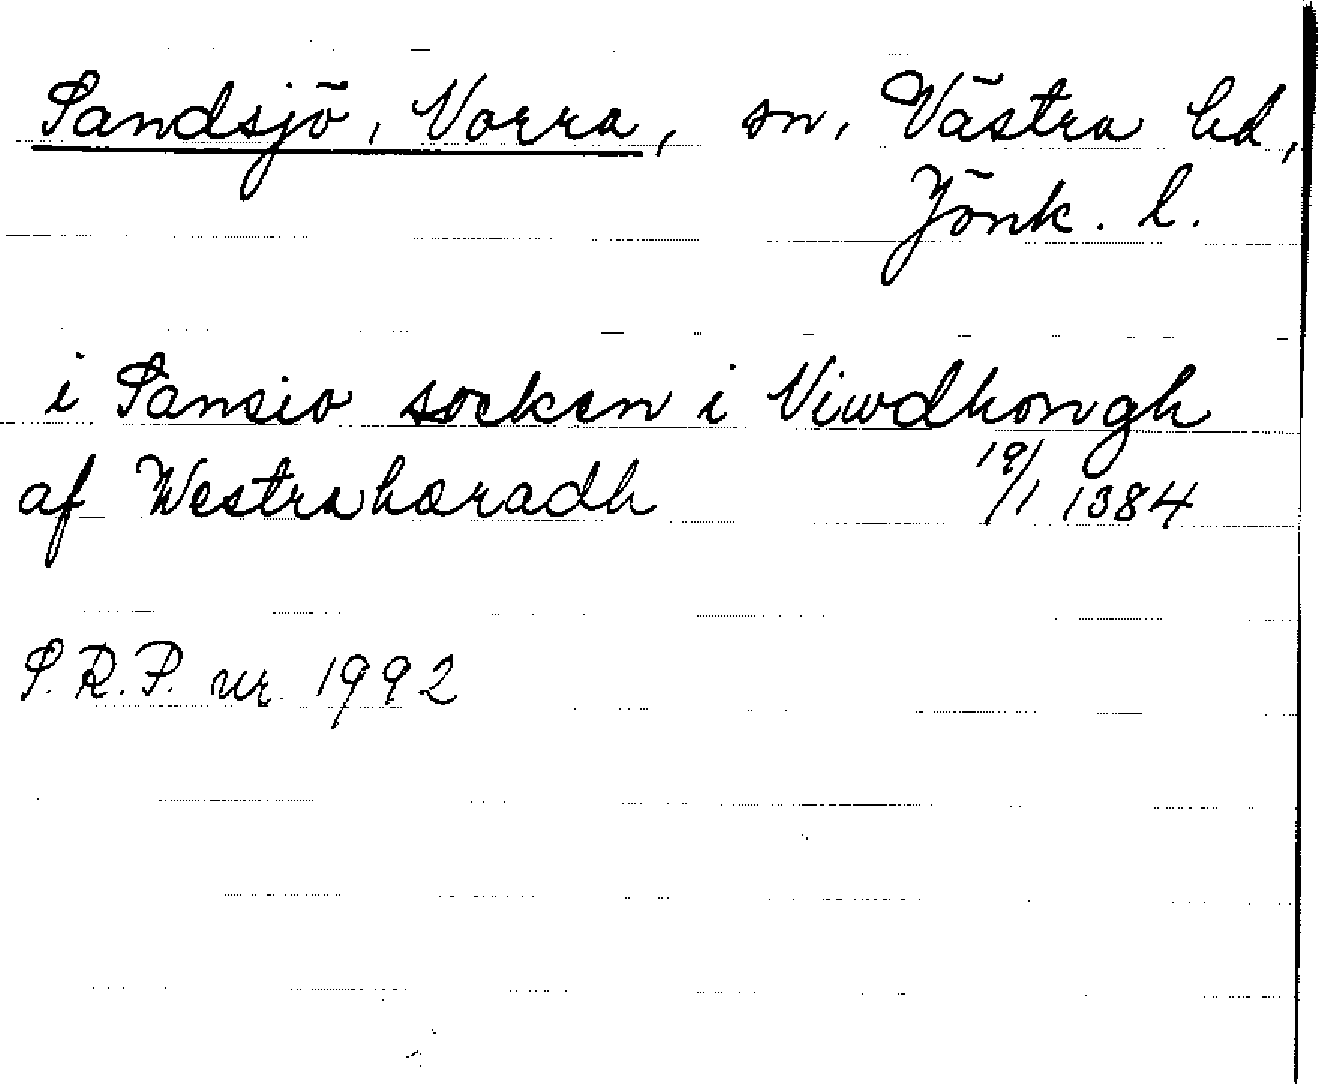 Sandsjö, Norra, sn, Västra hd,
Jönk. l.
i Sansio socken i Niwdhongh
af Westrahæradh 19/1 1384
S.R.P. nr 1992